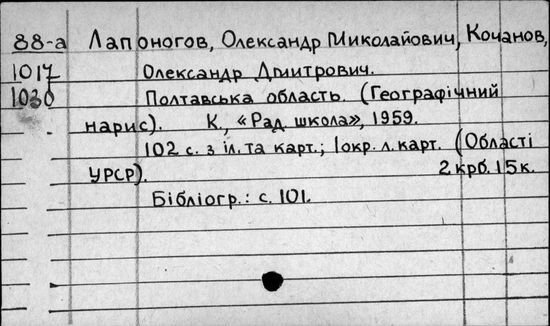 88-а Лапоногов, Олександр Миколайович, Кочанов,
1017 Олександр Дмитрович.
1030 Полтавська область. (Географічний
нарис). К., «Рад. школа», 1959.
102 с. з іл. та карт.; 1 окр. л. карт. (Області
УРСР). 2 крб. 15 к.
Бібліогр.: с. 101.